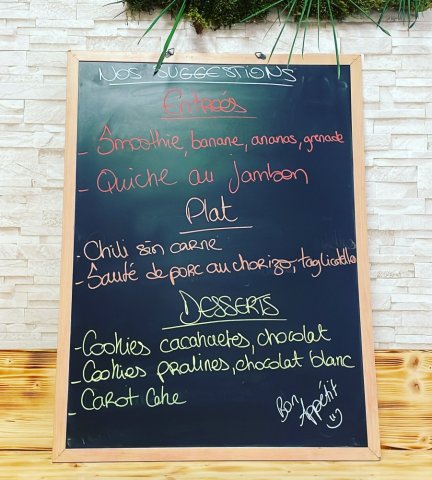 NOS SUGGESTIONS
Entrées
- Smoothie, banane, ananas, grenade
- Quiche au jambon
Plat
- Chili sin carne
- Sauté de porc au chorizo, tagliatelles
DESSERTS
- Cookies cacahuetes, chocolat
- Cookies pralines, chocolat blanc
- Carot Cake
Bon Appétit